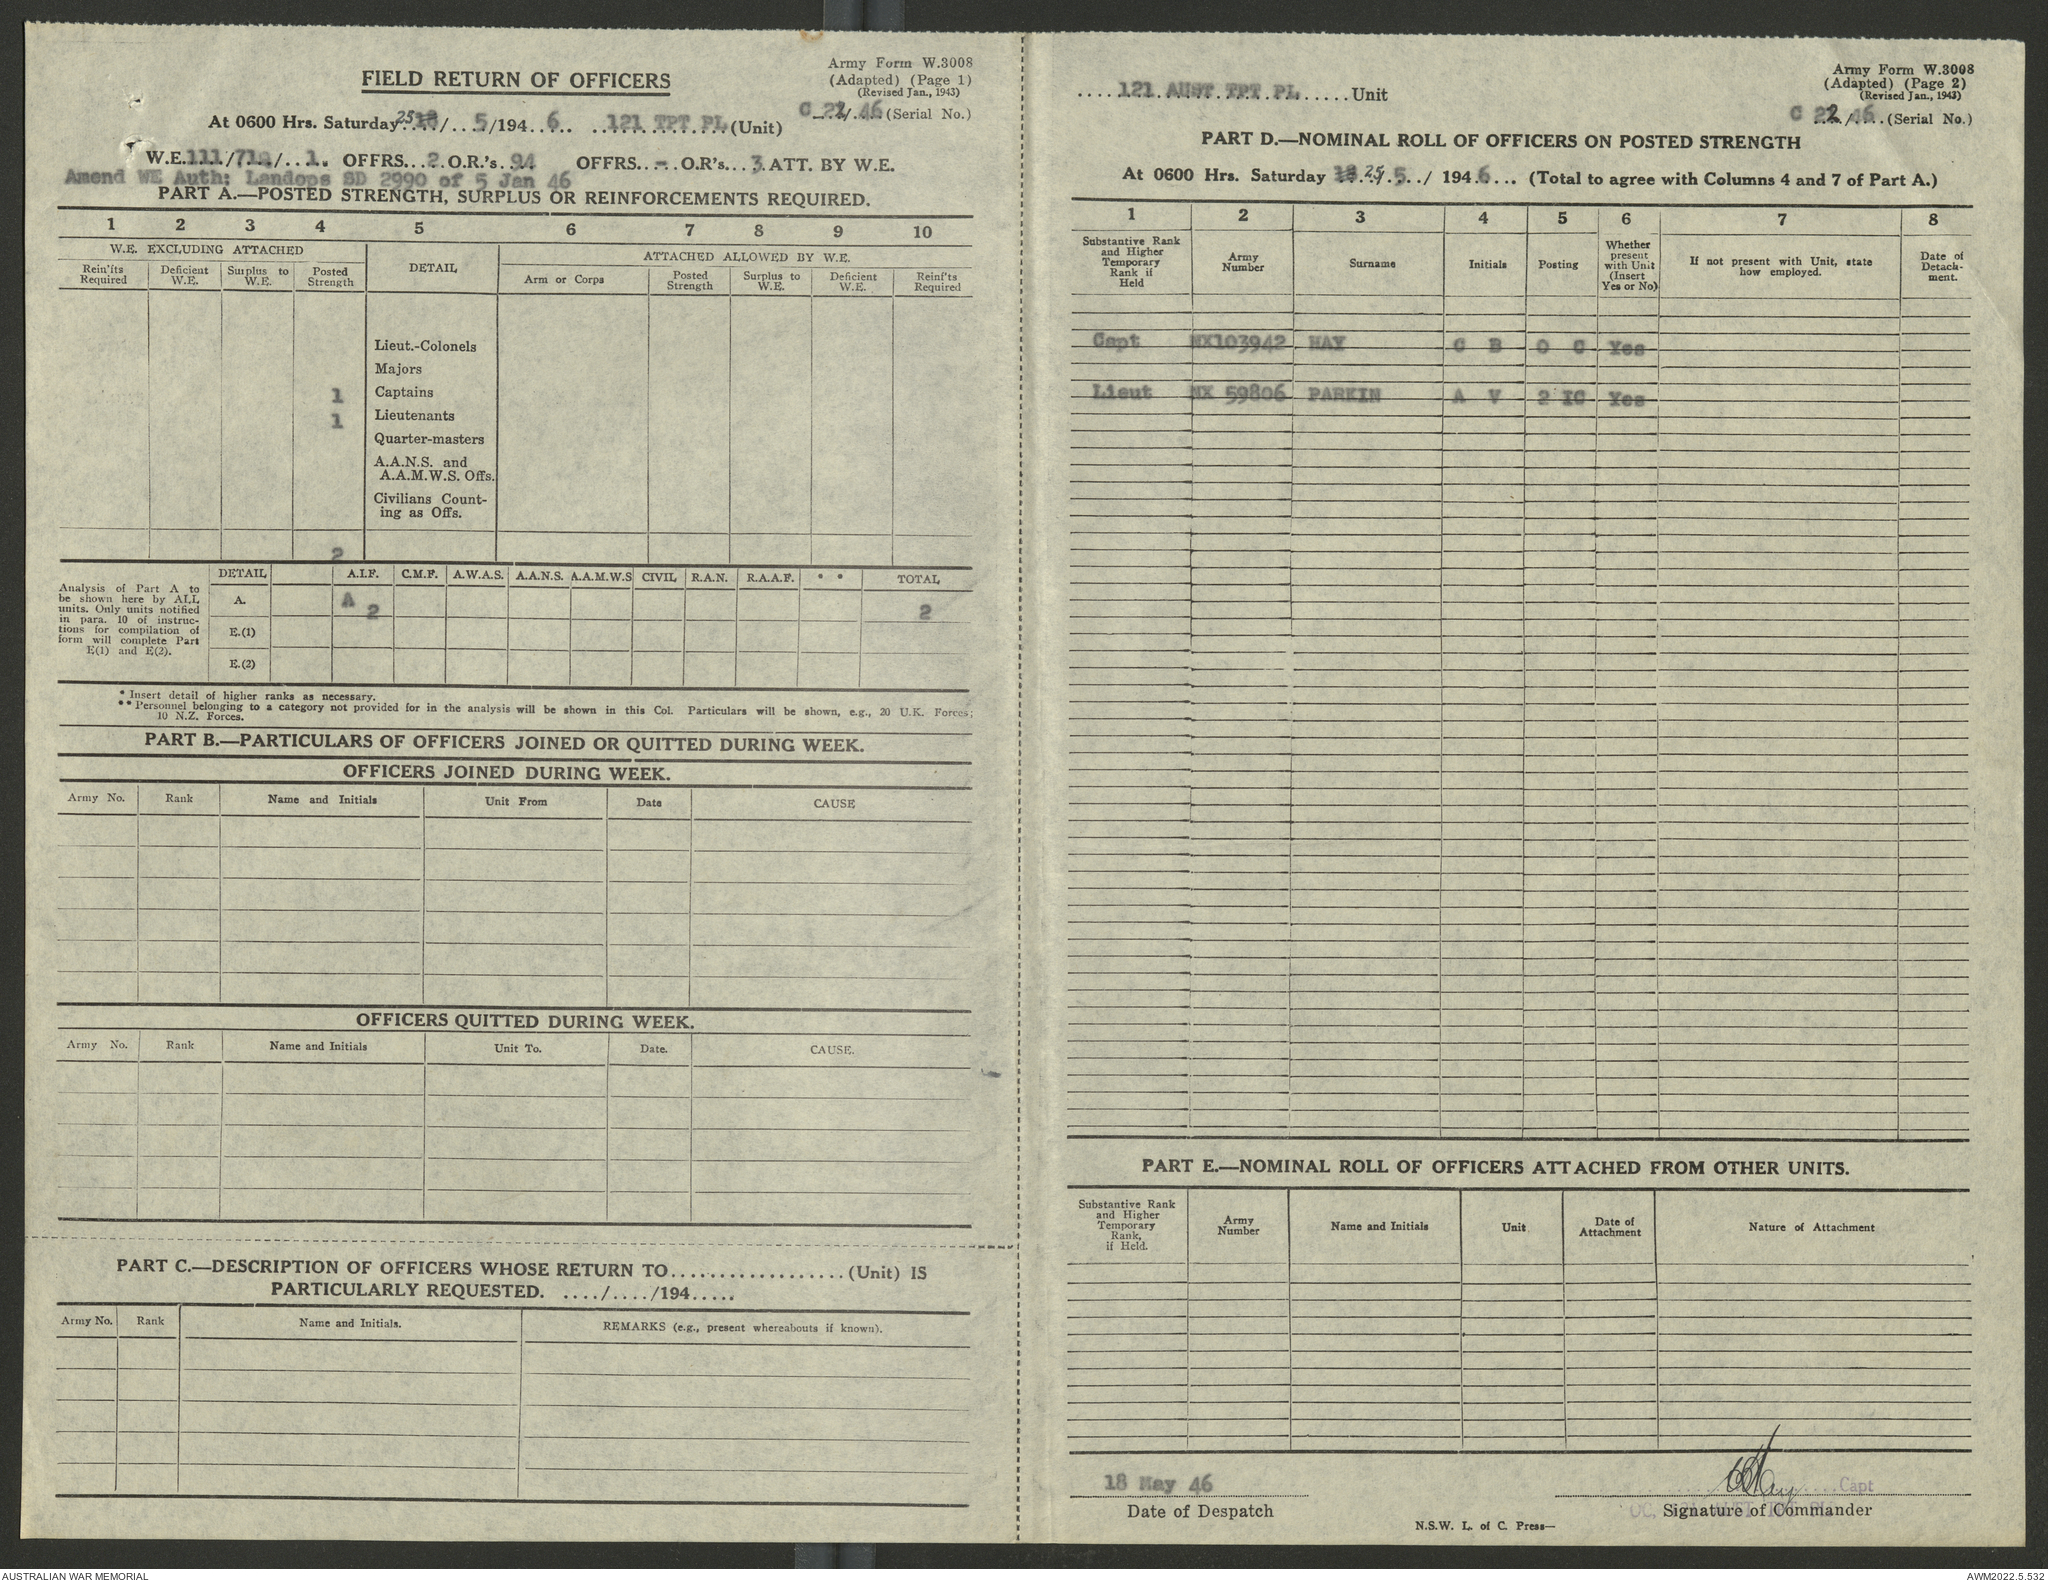 Army Form W.3008
FIELD RETURN OF OFFICERS
(Adapted) (Page 1)
(Revised Jan., 1943)
C 22/46 (Serial No.)
At 0600 Hrs. Saturday 25/5/1946 121 TPT PL (Unit)
W.E. 111/710/1. OFFRS. 2 O.R.'s 94 OFFRS. - O.R's. 3 ATT. BY W.E.
Amend WE Auth: Landops SD 2990 of 5 Jan 46
PART A.—POSTED STRENGTH, SURPLUS OR REINFORCEMENTS REQUIRED.
1 2 3 4 5 6 7 8 9 10
W.E. EXCLUDING ATTACHED
DETAIL
ATTACHED ALLOWED BY W.E.
Rein'its Required
Deficient W.E.
Surplus to W.E.
Posted Strength
Arm or Corps
Posted Strength
Surplus to W.E.
Deficient W.E.
Reinf'ts Required
Lieut.-Colonels
Majors
1 Captains
1 Lieutenants
Quarter-masters
A.A.N.S. and
A.A.M.W.S. Offs.
Civilians Count-
ing as Offs.
2
Analysis of Part A to
be shown here by ALL
units. Only units notified
in para. 10 of instruc-
tions for compilation of
form will complete Part
E(1) and E(2).
DETAIL A.I.F. C.M.F. A.W.A.S. A.A.N.S. A.A.M.W.S CIVIL R.A.N. R.A.A.F. * * TOTAL
A. A 2 2
E.(1)
E.(2)
* Insert detail of higher ranks as necessary.
** Personnel belonging to a category not provided for in the analysis will be shown in this Col. Particulars will be shown, e.g., 20 U.K. Forces;
10 N.Z. Forces.
PART B.—PARTICULARS OF OFFICERS JOINED OR QUITTED DURING WEEK.
OFFICERS JOINED DURING WEEK.
Army No. Rank Name and Initials Unit From Date CAUSE
OFFICERS QUITTED DURING WEEK.
Army No. Rank Name and Initials Unit To. Date. CAUSE.
PART C.—DESCRIPTION OF OFFICERS WHOSE RETURN TO.................. (Unit) IS
PARTICULARLY REQUESTED. ..../..../194.....
Army No. Rank Name and Initials. REMARKS (e.g., present whereabouts if known).
Army Form W.3008
(Adapted) (Page 2)
(Revised Jan., 1943)
....121 AUST TPT PL......Unit
C 22/46 (Serial No.)
PART D.—NOMINAL ROLL OF OFFICERS ON POSTED STRENGTH
At 0600 Hrs. Saturday 18 25/5/1946... (Total to agree with Columns 4 and 7 of Part A.)
1 2 3 4 5 6 7 8
Substantive Rank
and Higher
Temporary
Rank if
Held
Army
Number
Surname
Initials
Posting
Whether
present
with Unit
(Insert
Yes or No)
If not present with Unit, state
how employed.
Date of
Detach-
ment.
Capt NX103942 HAY C B O C Yes
Lieut NX 59806 PARKIN A V 2 IC Yes
PART E.—NOMINAL ROLL OF OFFICERS ATTACHED FROM OTHER UNITS.
Substantive Rank
and Higher
Temporary
Rank,
if Held.
Army
Number
Name and Initials
Unit
Date of
Attachment
Nature of Attachment
18 May 46
CBHay Capt
Date of Despatch
Signature of Commander
N.S.W. L. of C. Press—
AUSTRALIAN WAR MEMORIAL
AWM2022.5.532